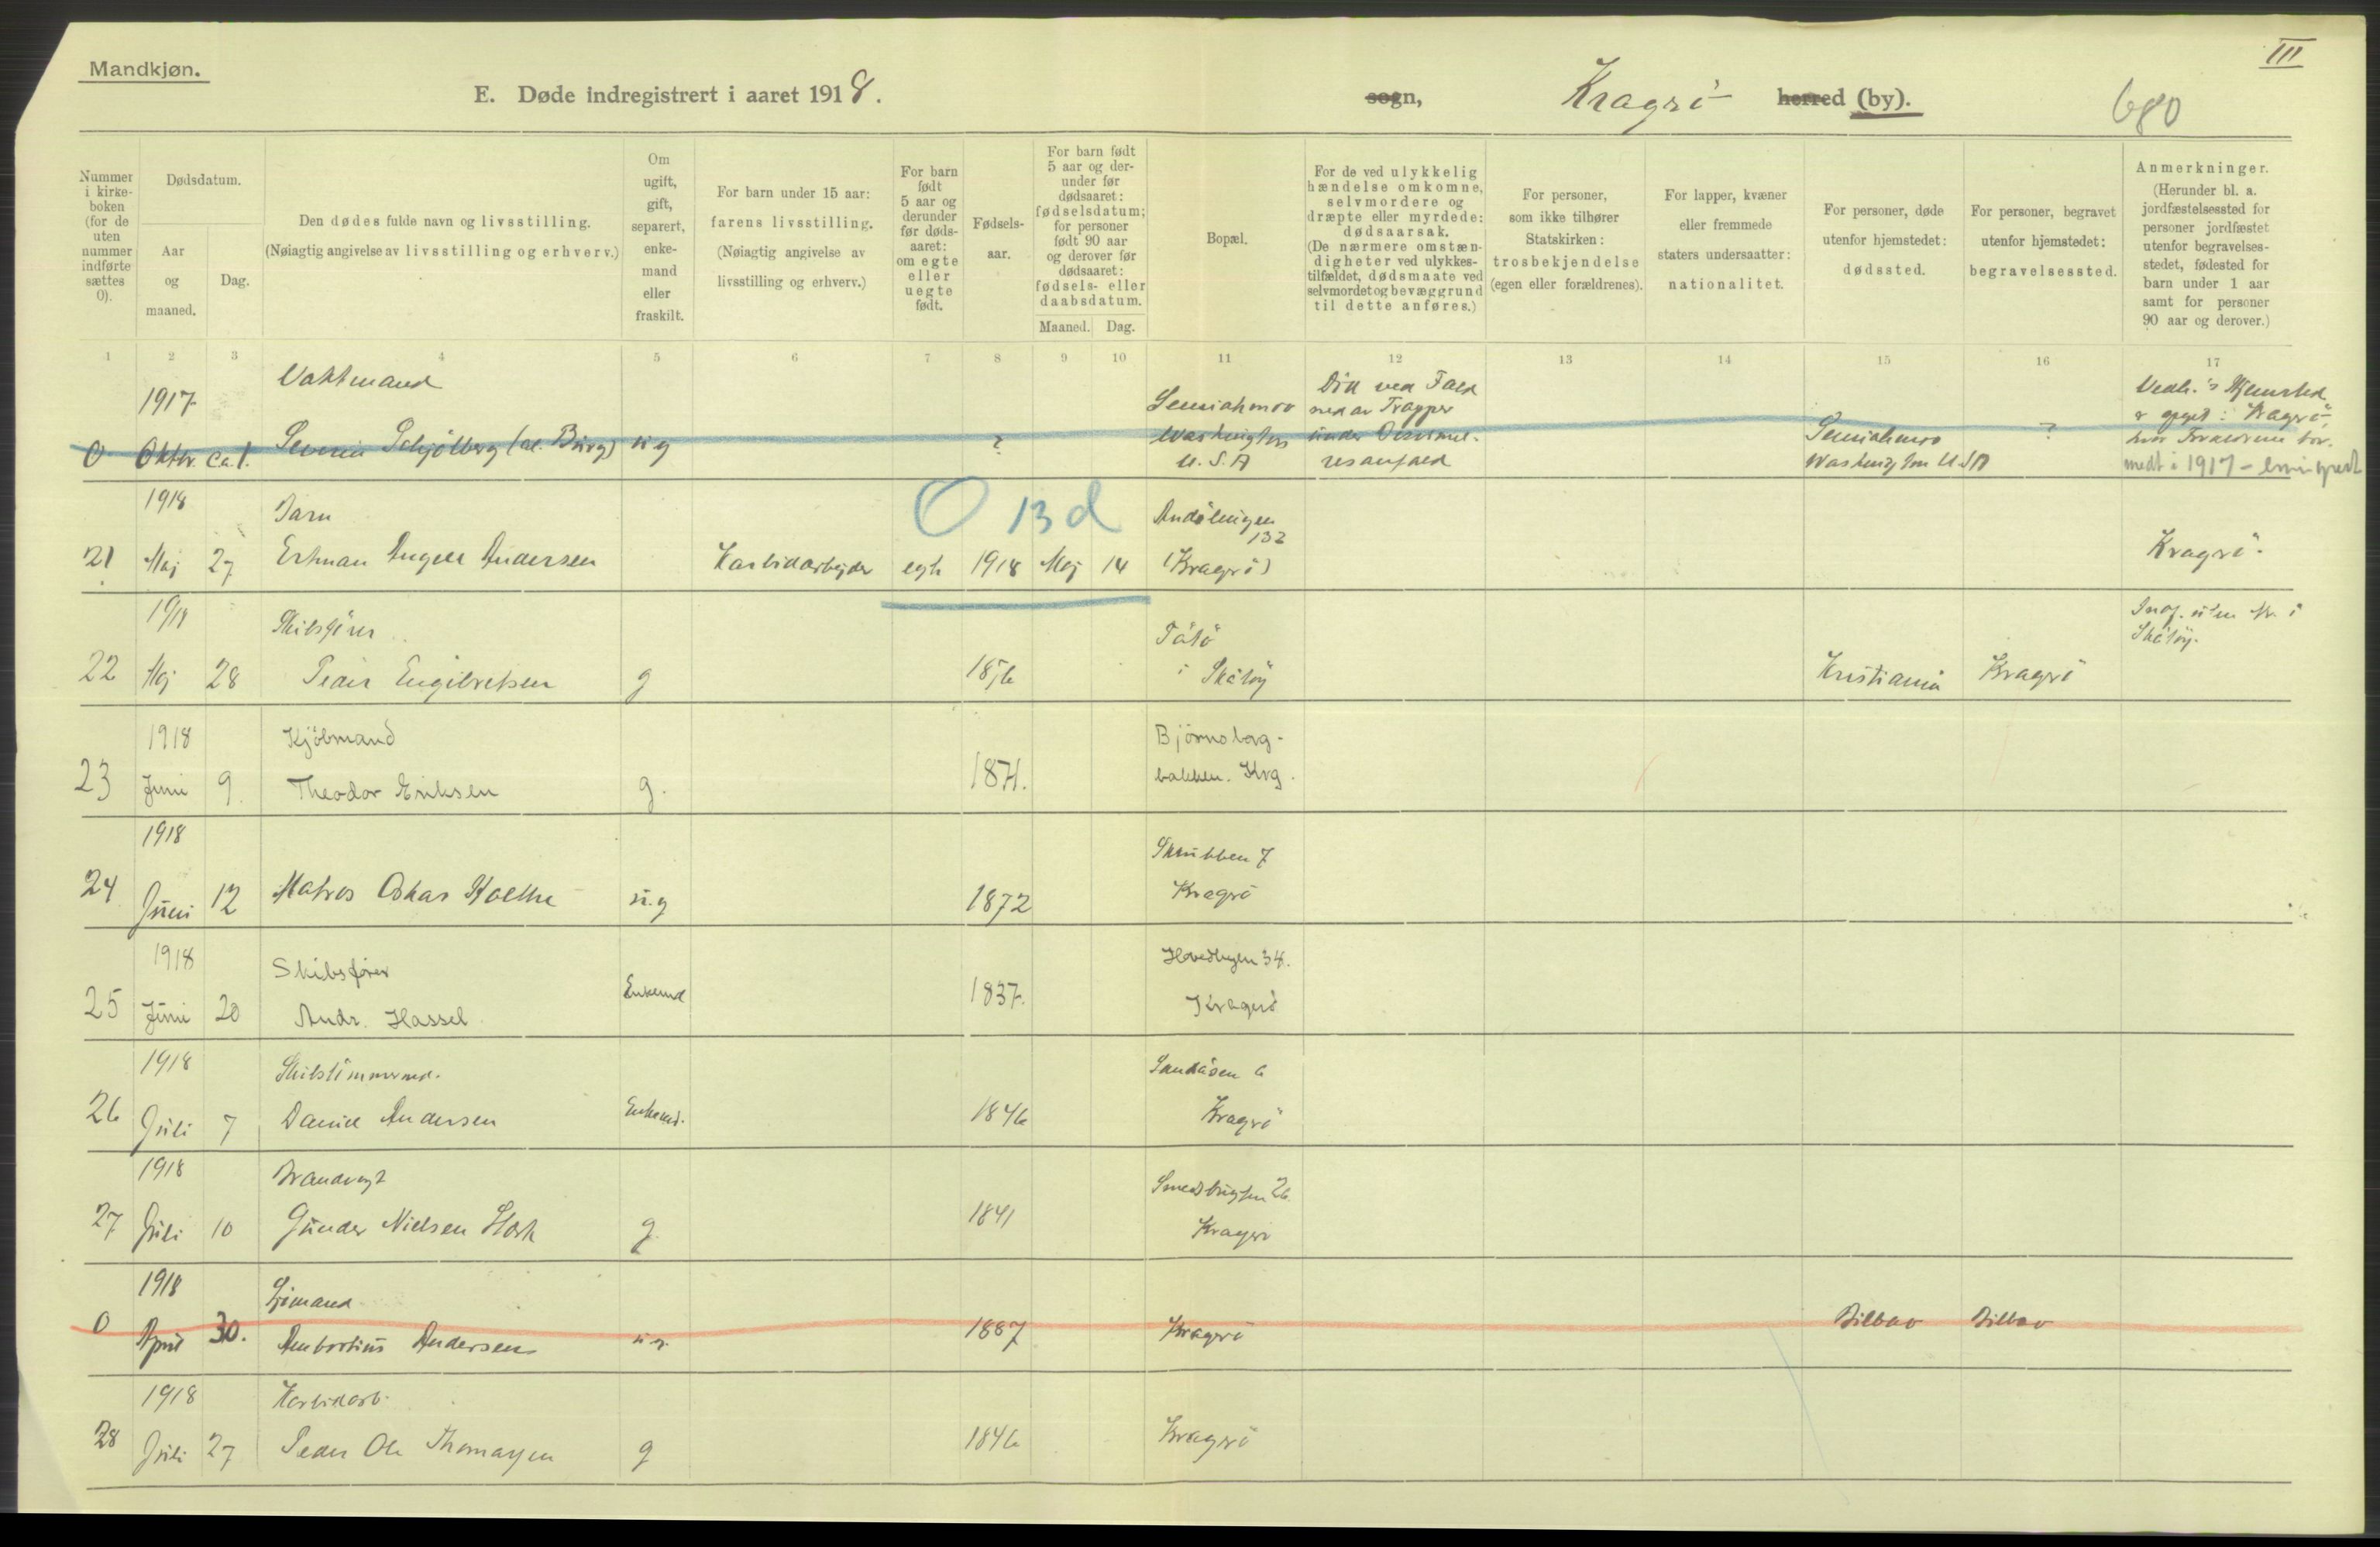 III
Mandkjøn.
E. Døde indregistrert i aaret 1918.
sogn,
Kragrö
herred (by).
680
Nummer i kirke-boken (for de uten nummer indførte sættes 0).
Dødsdatum.
Aar og maaned.
Dag.
Den dødes fulde navn og livsstilling.
(Nøiagtig angivelse av livsstilling og erhverv.)
Om ugift, gift, separert, enke-mand eller fraskilt.
For barn under 15 aar:
farens livsstilling.
(Nøiagtig angivelse av livsstilling og erhverv.)
For barn født 5 aar og derunder før døds-aaret: om egte eller uegte født.
Fødsels-aar.
For barn født 5 aar og der-under før dødsaaret: fødselsdatum; for personer født 90 aar og derover før dødsaaret: fødsels- eller daabsdatum.
Maaned.
Dag.
Bopæl.
For de ved ulykkelig hændelse omkomne, selvmordere og dræpte eller myrdede: dødsaarsak.
(De nærmere omstæn-digheter ved ulykkes-tilfældet, dødsmaate ved selvmordet og bevæggrund til dette anføres.)
For personer, som ikke tilhører Statskirken: trosbekjendelse (egen eller forældrenes).
For lapper, kvæner eller fremmede staters undersaatter: nationalitet.
For personer, døde utenfor hjemstedet: dødssted.
For personer, begravet utenfor hjemstedet: begravelsessted.
Anmerkninger.
(Herunder bl. a. jordfæstelsessted for personer jordfæstet utenfor begravelses-stedet, fødested for barn under 1 aar samt for personer 90 aar og derover.)
1 2 3 4 5 6 7 8 9 10 11 12 13 14 15 16 17
1917 Vaktmand Semiahmoo Död ved Fald
ned av Trapper
0 Oktbr. ca 1. Severin Schjölberg (al. Burg) ug ? Washington under
U.S.A Semiahmoo ?
Washington U.S.A
medt i 1917 - emigrert
O 13 d
1918 Barn
132
21 Maj 27 Andersen Karbidarbejder egte 1918 Maj 14 (Kragrö) Kragrö.
1918 Skibsförer Tåtö
i Skåtöy
Skåtöy.
22 Maj 28 Peder Engebretsen g 1856 Kristiania Kragrö
1918 Kjöbmand Björnsborg-
23 Juni 9. Theodor Eriksen g. 1871. bakken. Krg.
1918 Skrubben 7
24 Juni 12 Matros Oskar ug 1872 Kragrö
1918 Skibsfører 34.
25 Juni 20 Andr. Hassel Enkemd 1837. Kragerö
1918 Skibstömmermd. 6
26 Juli 7 Daniel Andersen Enkemd. 1846 Kragrö
1918 Brandvagt Smedsbugten 26.
27 Juli 10 Gunder Nielsen g. 1841 Kragrö
1918 Sjömand
0 April 30. Andersen ug. 1887 Kragrö Bilbao Bilbao
1918 Karbidarb.
28 Juli 27 Peder Ole Thomassen g 1846 Kragrö